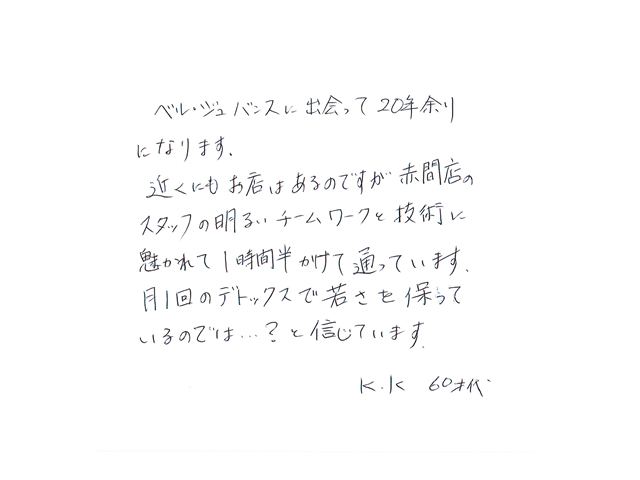 ベル・ジュバンスに出会って20年余り
になります.
近くにもお店はあるのですが赤間店の
スタッフの明るいチームワークと技術に
魅かれて1時間半かけて通っています.
月1回のデトックスで若さを保って
いるのでは…?と信じています.
K.K 60才代